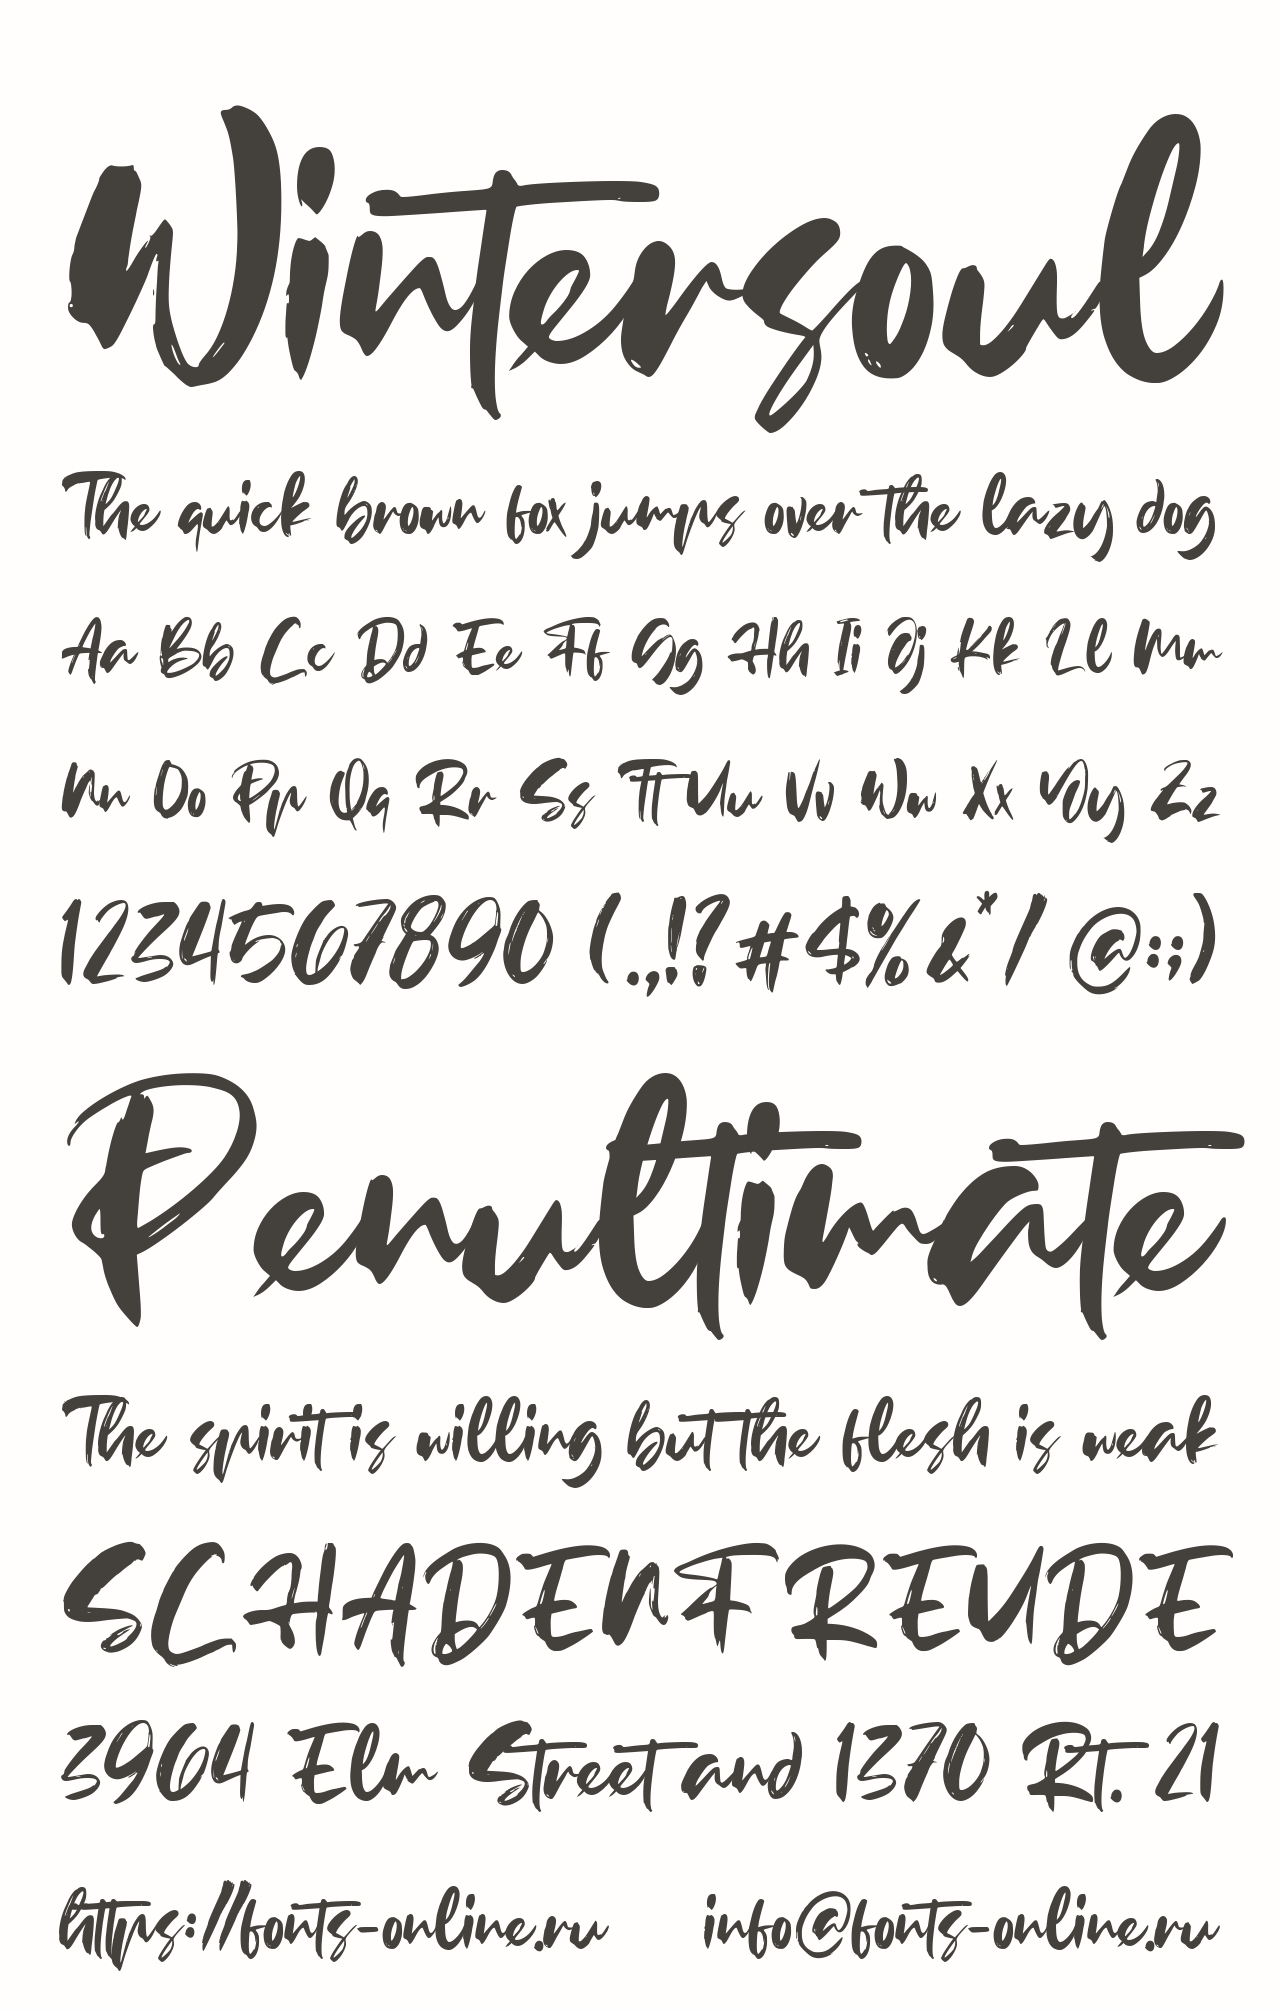 Wintersoul
The quick brown fox jumps over the lazy dog
Aa Bb Cc Dd Ee Ff Gg Hh Ii Jj Kk Ll Mm
Nn Oo Pp Qq Rr Ss Tt Uu Vv Ww Xx Yy Zz
1234567890 (.,!?#$%&*/ @:;)
Penultimate
The spirit is willing but the flesh is weak
SCHADENFREUDE
3964 Elm Street and 1370 Rt. 21
https://fonts-online.ru info@fonts-online.ru